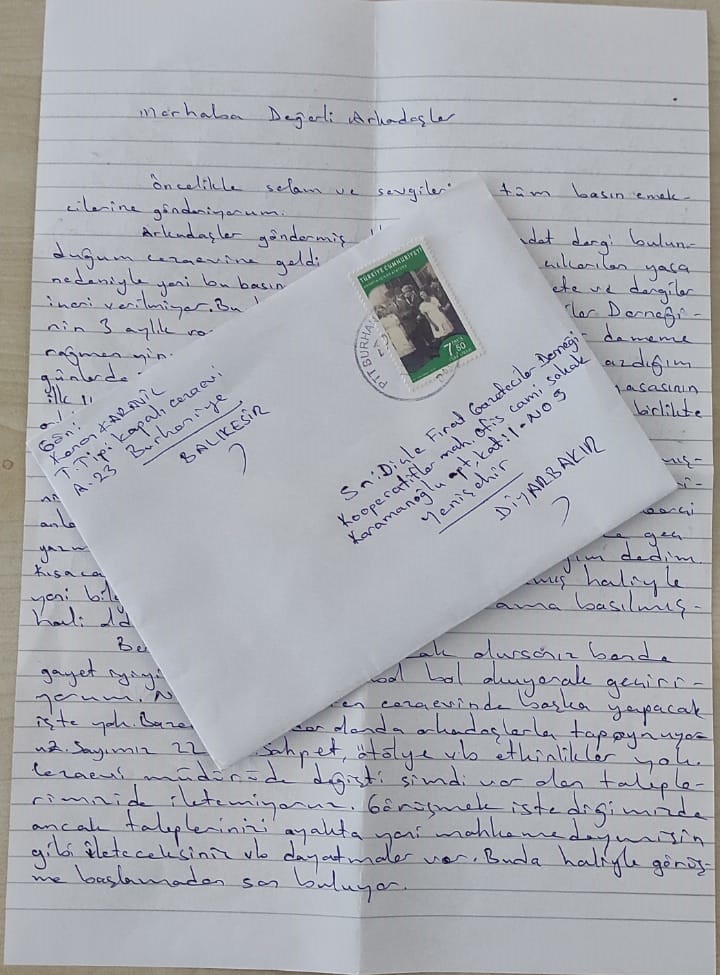 Merhaba Değerli Arkadaşlar
öncelikle selam ve sevgileri tüm basın emek-
cilerine gönderiyorum.
Arkadaşlar göndermiş adet dergi bulun-
duğum cezaevine geldi çıkarılan yasa
nedeniyle yeni bu basın ete ve dergiler
içeri verilmiyor. Bu iler Derneği-
nin 3 aylık ra dememe
rağmen yin azdığım
günlerde asasının
ilk 11 birlikte
mış-
ni
anla
yazm geç
Kısaca ım dedim.
yeni bilg mış haliyle
hali old ama basılmış-
Be ak olursanız bende
gayet iyiyi bol bol okuyarak geçiri-
yorum. N en cezaevinde başka yapacak
işte yok. Baze alanda arkadaşlarla top oynuyor-
uz. Sayımız 22 Sohpet, atölye vb etkinlikler yok.
Cezaevi müdürüde değişti şimdi var olan taleple-
rimizide iletemiyoruz. Görüşmek istediğimizde
ancak taleplerinizi ayakta yani mahkemedeymişin
gibi ileteceksiniz vb dayatmalar var. Buda haliyle görüş-
me başlamadan son buluyor.
TÜRKİYE CUMHURİYETİ
7 50
PTT BURHA
Gön:
Kenan KARAVİL
T. Tipi kapalı cezaevi
A-23 Burhaniye
BALIKESİR
Sn: Dicle Fırat Gazeteciler Derneği
Kooperatifler mah, ofis cami sokak
Karamanoğlu apt, kat:1-NO 3
Yenişehir
DİYARBAKIR